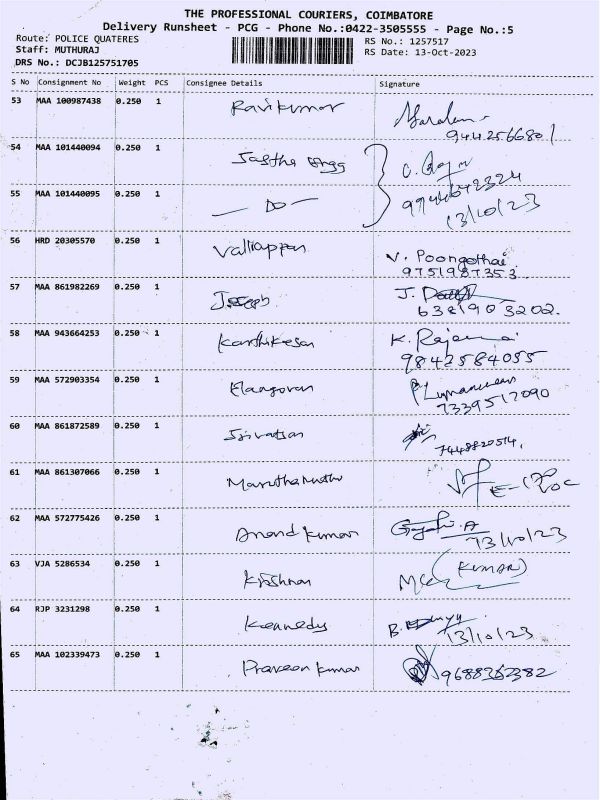 THE PROFESSIONAL COURIERS, COIMBATORE
Delivery Runsheet - PCG - Phone No.:0422-3505555 - Page No.:5
Route: POLICE QUATERES
RS No.: 1257517
Staff: MUTHURAJ
RS Date: 13-Oct-2023
DRS No.: DCJB125751705
S No Consignment No Weight PCS Consignee Details Signature
53 MAA 100987438 0.250 1 Ravikumar
9442566801
54 MAA 101440094 0.250 1 Jastha
9944642324
55 MAA 101440095 0.250 1 — DO — 13/10/23
56 HRD 20305570 0.250 1 Valliappan V. Poongothai
9751987353
57 MAA 861982269 0.250 1 Joseph J.
6381903202.
58 MAA 943664253 0.250 1 Karthikesan K.
9842584055
59 MAA 572903354 0.250 1 Elangovan
7339517090
60 MAA 861872589 0.250 1 Srivatsan
7448820514,
61 MAA 861307066 0.250 1 Maruthamuthu
62 MAA 572775426 0.250 1 Anand kumar
13/10/23
63 VJA 5286534 0.250 1 Krishnan (KUMAR)
64 RJP 3231298 0.250 1 Kennedy B.
13/10/23
65 MAA 102339473 0.250 1 Praveen kumar 9688362382